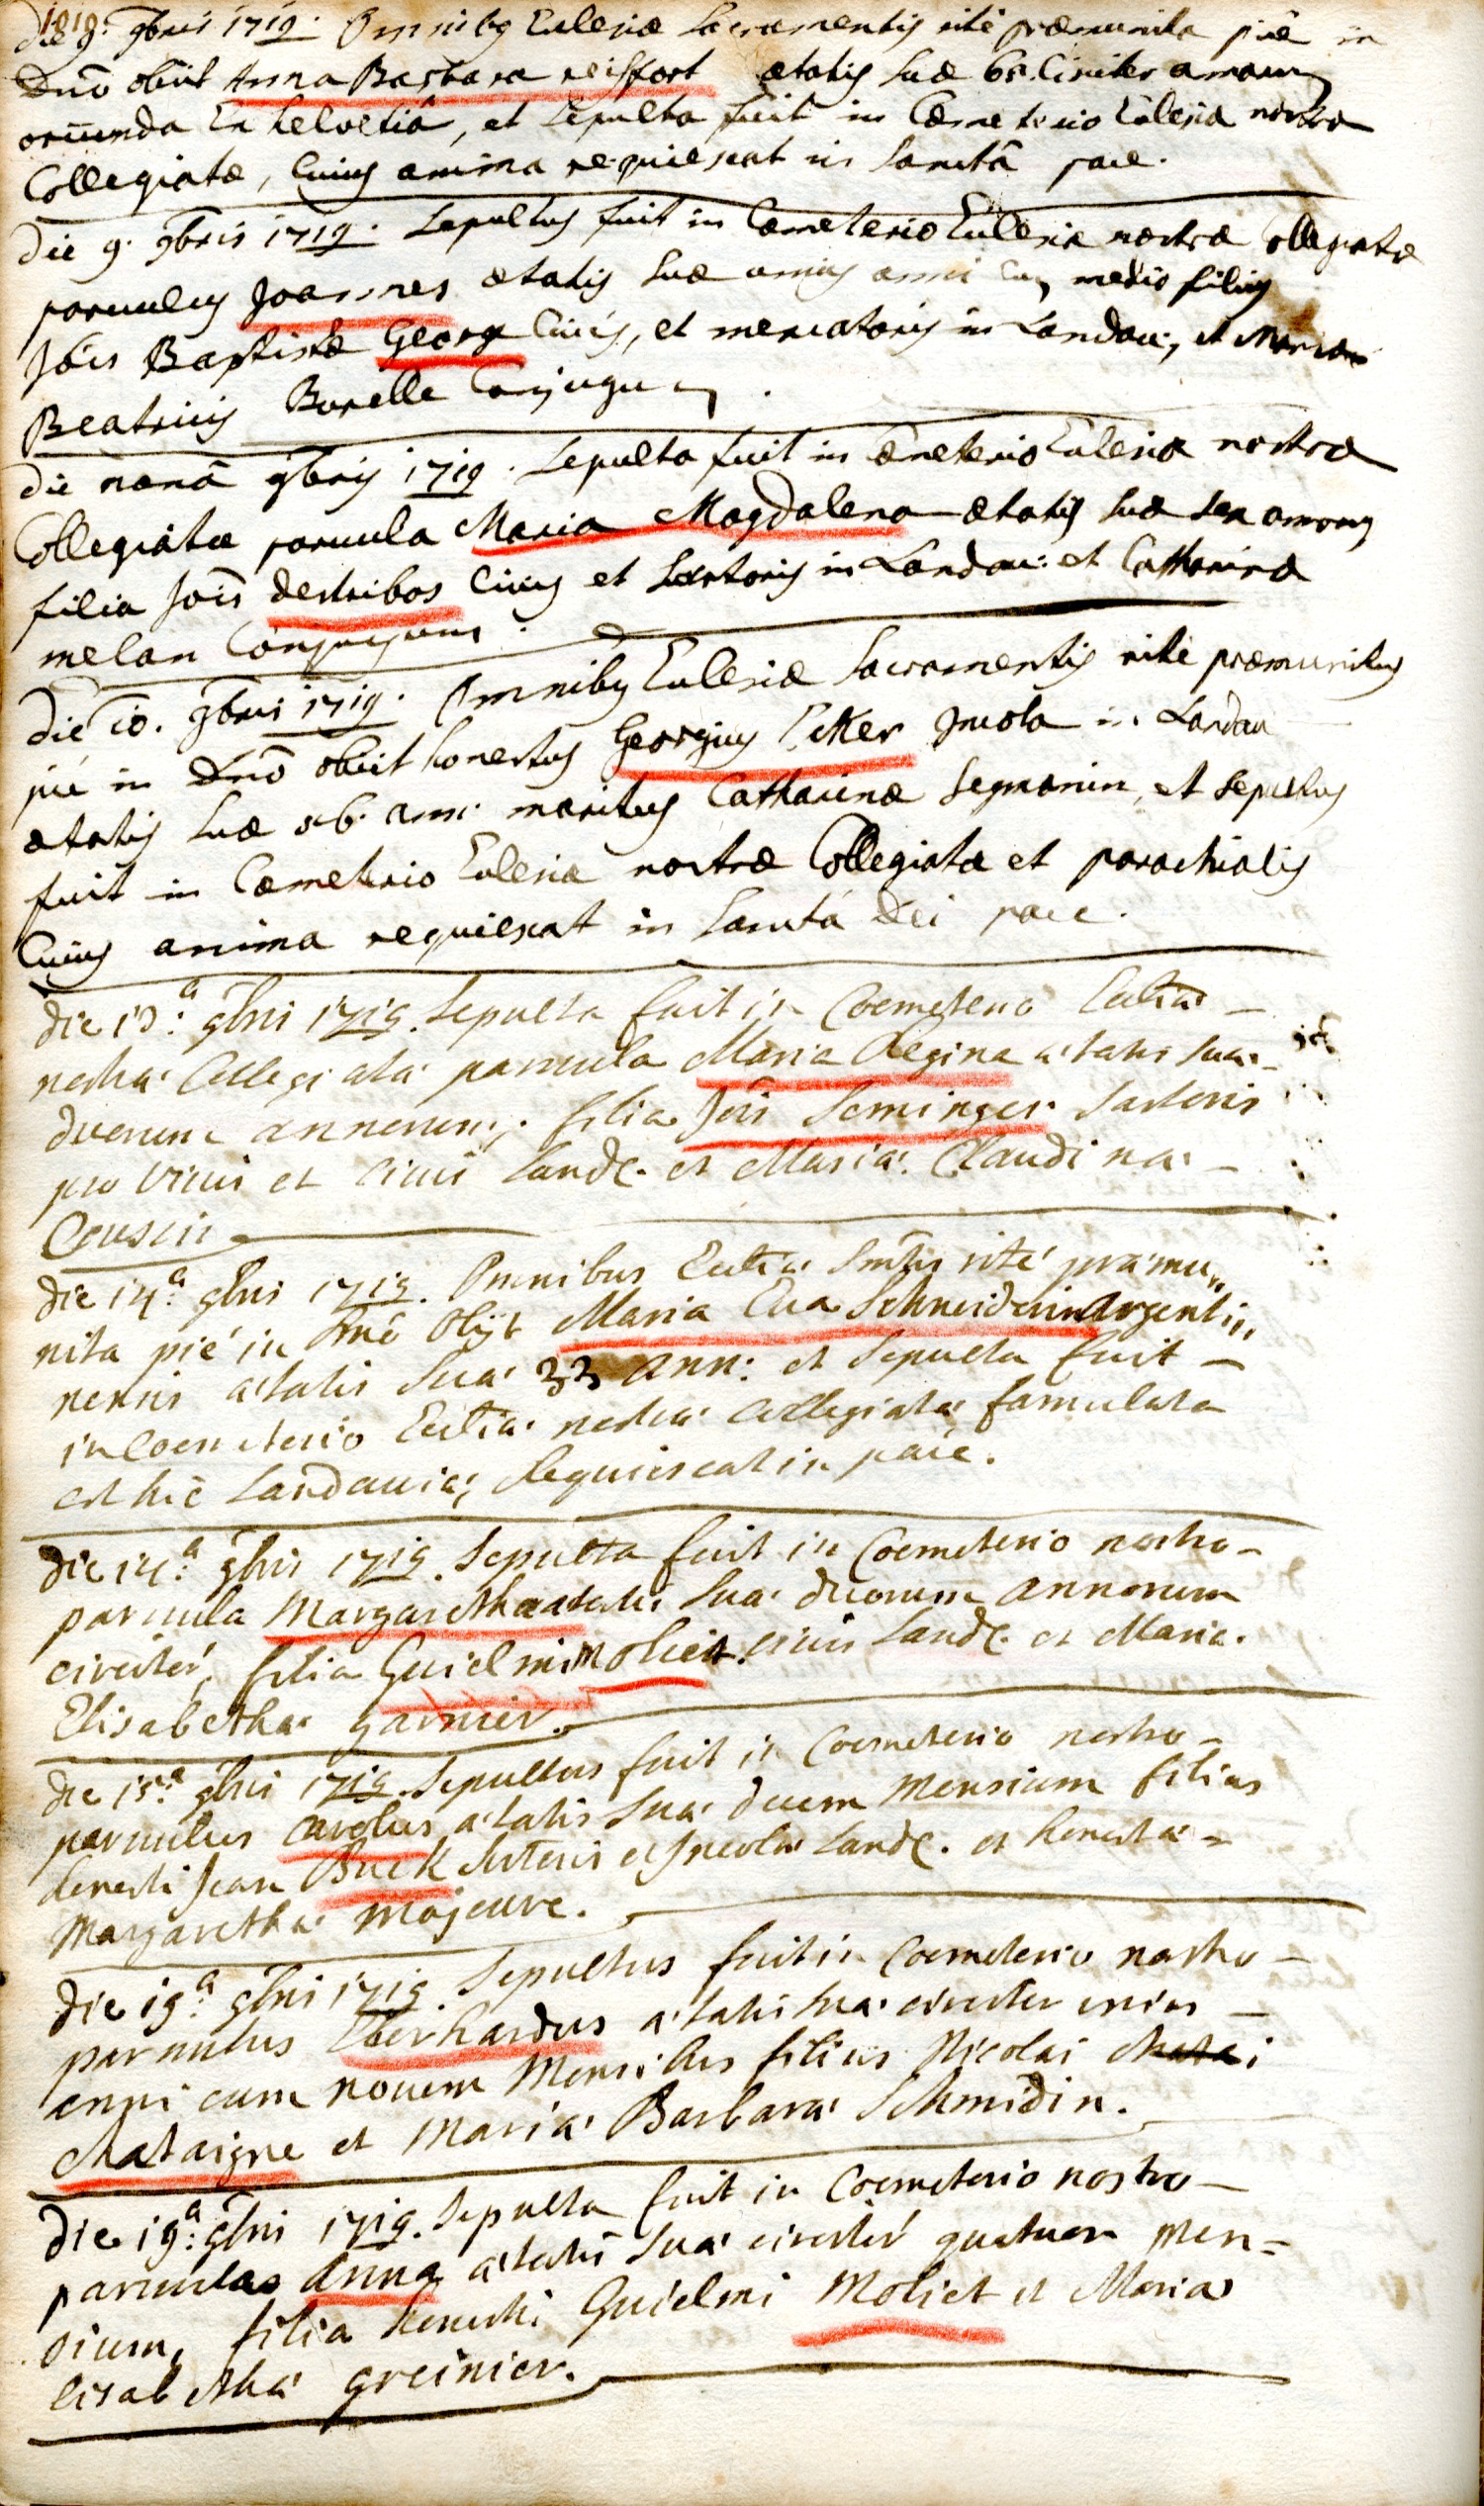 Die 9. 9bris 1719. Omnibq Ecclesiæ Sacramentis ritè præmunita piè in
Dnō obiit Anna Barbara reiffort ætatis suæ circiter annorum
oriunda Ex helvetiâ, et sepulta fuit in Cœmeterio Ecclesiæ nostræ
Collegiatæ, Cuius anima requiescat in sanctâ pace.
Die 9. 9bris 1719. Sepultus fuit in Cœmeterio Ecclesiæ nostræ Collegiatæ
parvulus Joannes ætatis suæ unius anni cum medio filius
Jōis Baptistæ Georg Civis, et mercatoris in Landau, et Mariæ
Beatricis Borelle Conjugum.
Die nonâ 9bris 1719. Sepulta fuit in Cœmeterio Ecclesiæ nostræ
Collegiatæ parvula Maria Magdalena ætatis suæ sex annorum
filia Jōis destribos Civis et Sartoris in Landau: et Catharinæ
melan Conjugum.
Die 10. 9bris 1719. Omnibq Ecclesiæ Sacramentis ritè præmunitus
piè in Dnō obiit honestus Georgius Incola in Landau
ætatis suæ ann: maritus Catharinæ Segmanin, et sepultus
fuit in Cœmeterio Ecclesiæ nostræ Collegiatæ et parochialis
Cuius anima requiescat in sanctâ Dei pace.
die 13.ª 9bris 1719. Sepulta fuit in Coemeterio Eccliæ
nostræ Collegiatæ parvula Maria Regina ætatis suæ
duorum annorum, filia Jōis Seminger Sartoris
pro vicis et civis Land. et Mariæ Claudinæ
Cousin
die 14.ª 9bris 1719. Omnibus Eccliæ Smtis ritè præmu„
nita piè in Dnō Obijt Maria Eva Schneiderin Argenti„
nensis ætatis Suæ 33 ann: et Sepulta fuit
in Coemeterio Eccliæ nostræ Collegiatæ famulata
est hic Landaviæ, Requiescat in pace.
die 14.ª 9bris 1719. Sepulta fuit in Coemeterio nostro
parvula Margaretha ætatis Suæ duorum annorum
circiter, filia Guielmi Moliet civis Land. et Mariæ
Elisabethæ garnier.
die 15.ª 9bris 1719. Sepultus fuit in Coemeterio nostro
parvulus Carolus ætatis Suæ duum Mensium filius
honesti Jean Buck Sutoris et Incolæ Land. et honestæ
Margarethæ Majeure.
die 19.ª 9bris 1719. Sepultus fuit in Coemeterio nostro
parvulus Eberhardus ætatis suæ circiter unius
anni cum novem Mensibus filius Nicolai
chataigne et Mariæ Barbaræ Schmidin.
die 19.ª 9bris 1719. Sepulta fuit in Coemeterio nostro
parvula Anna ætatis Suæ circiter quatuor men=
sium, filia honesti Guielmi Moliet et Mariæ
lisabethæ greinier.